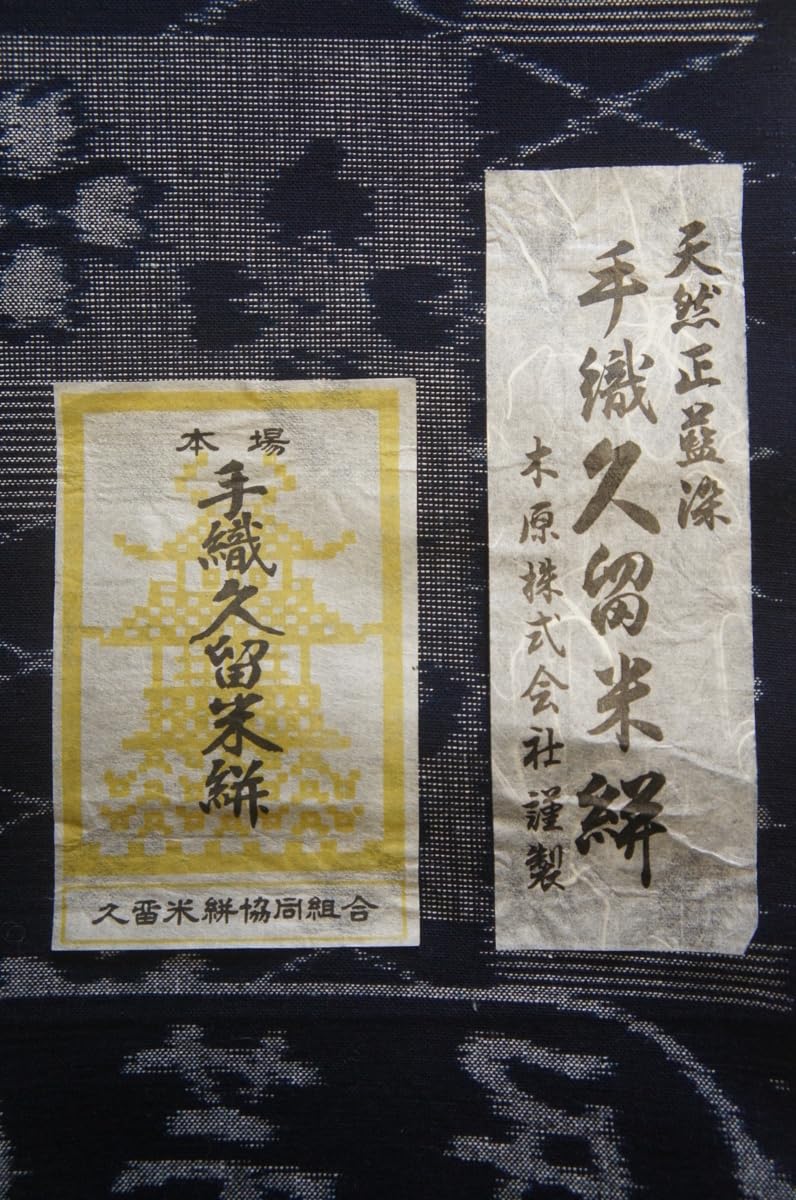 天然正藍染
手織久留米絣
木原株式会社謹製
本場
手織久留米絣
久畱米絣協同組合